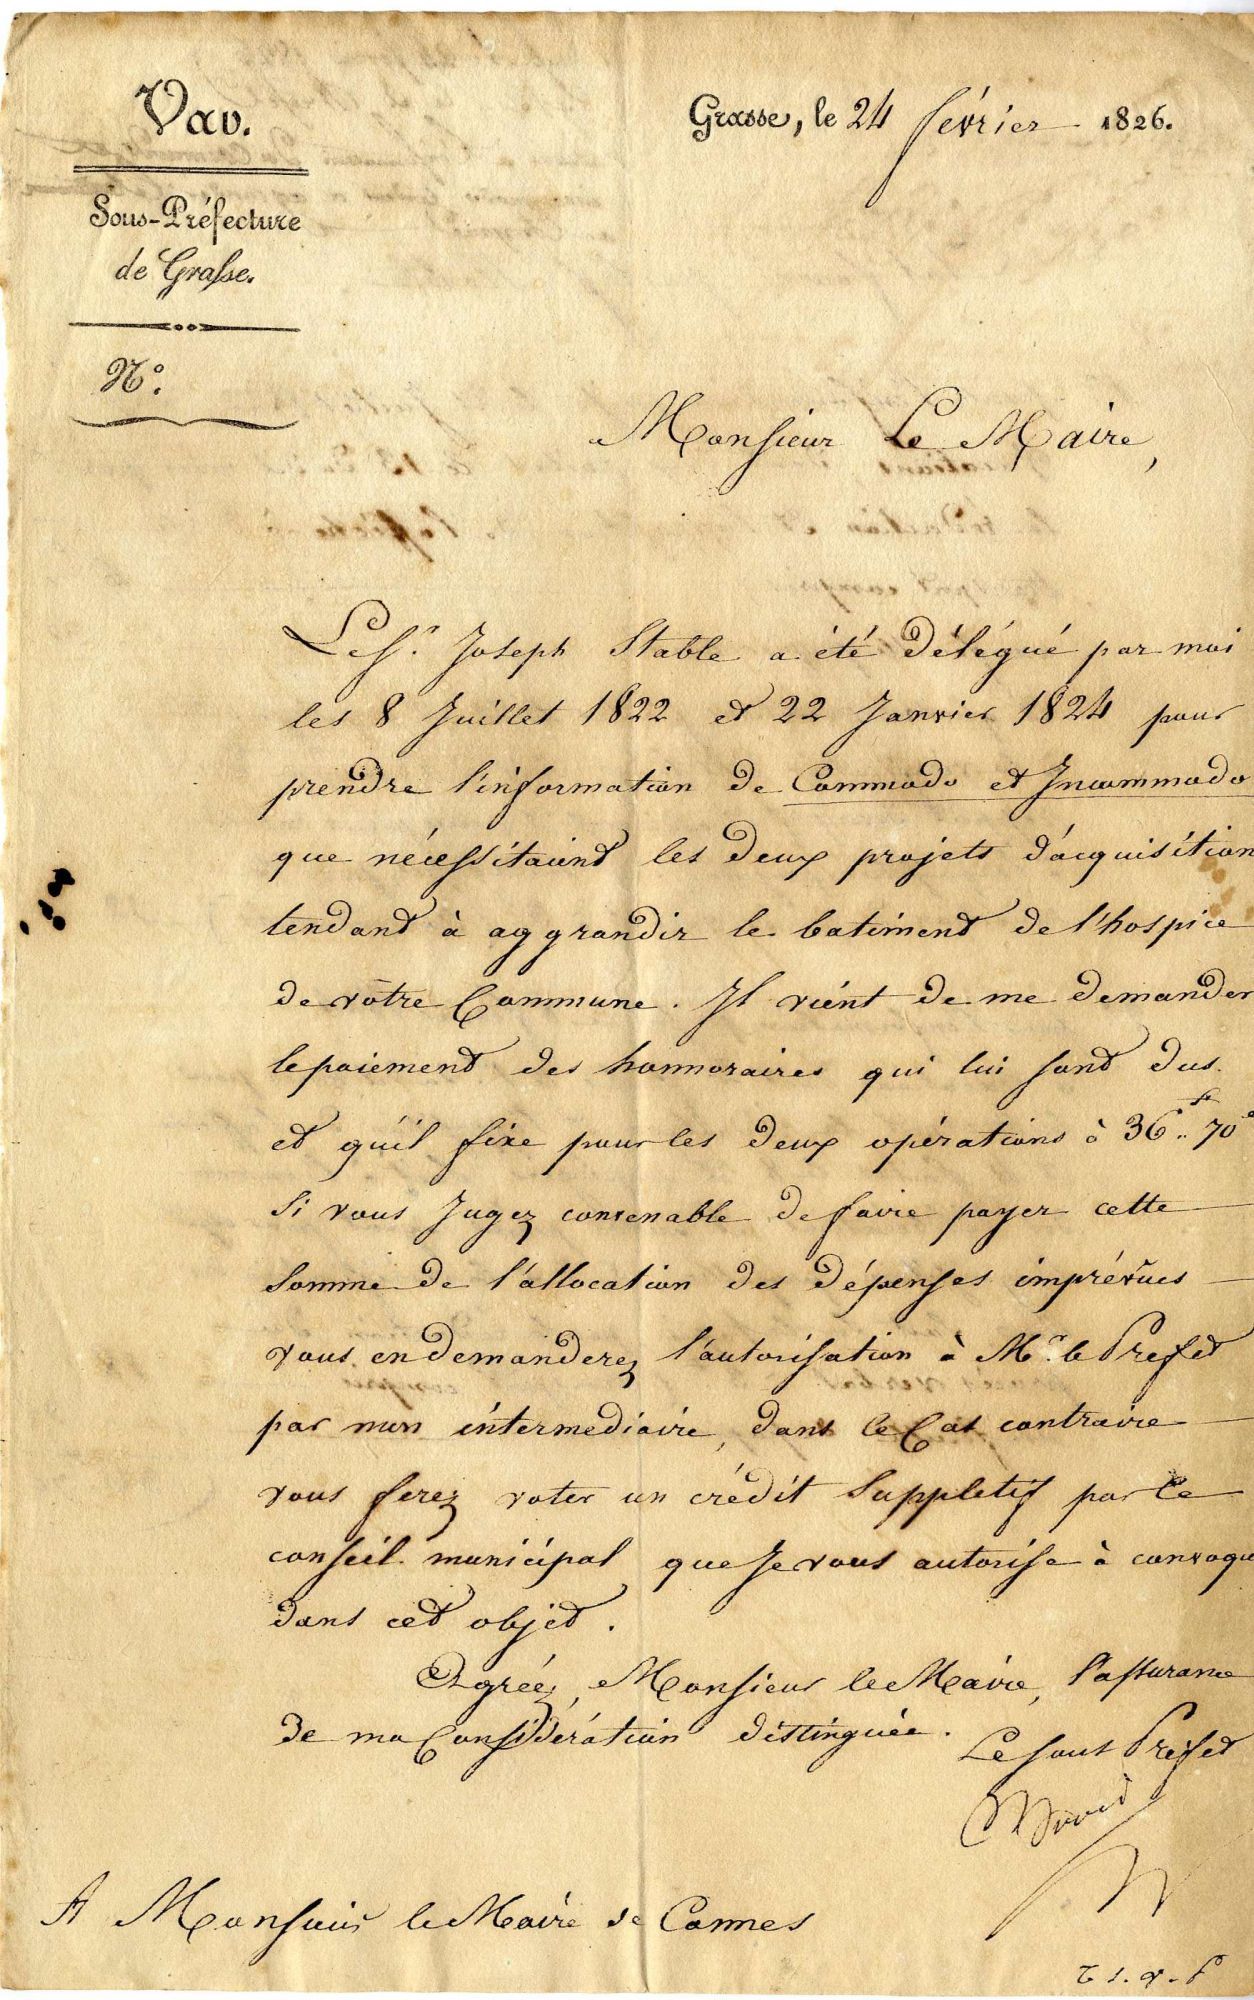 Var.
Sous-Préfecture
de Grasse.
N.°
Grasse, le 24 février 1826.
Monsieur Le Maire,
Le Sr. Joseph Stable a été délégué par moi
les 8 Juillet 1822 et 22 Janvier 1824 pour
prendre l'information de Commodo et Incommodo
que nécessitaient les deux projets d'acquisition
tendant à aggrandir le batiment de l'hospice
de vôtre Commune. Il vient de me demander
le paiement des honnoraires qui lui sont dus
et qu'il fixe pour les deux opérations à 36 fr 70 c
si vous Jugez convenable de faire payer cette
somme de l'allocation des dépenses imprévues
vous en demanderez l'autorisation à Mr. le Prefet
par mon intermediaire, dans le Cas contraire
vous ferez voter un crédit Suppletif par le
conseil municipal que Je vous autorise à convoque
dans cet objet.
Agréez, Monsieur le Maire, l'assurance
de ma Considération distinguée.
Le sous Prefet
A Monsieur le Maire de Cannes